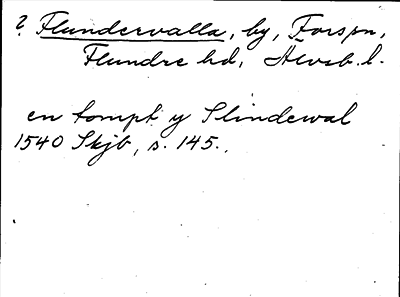 ? Flundervalla, by, Forspn,
Flundre hd, Älvsb. l.
en tompt y Slindewal
1540 Skjb, s. 145.